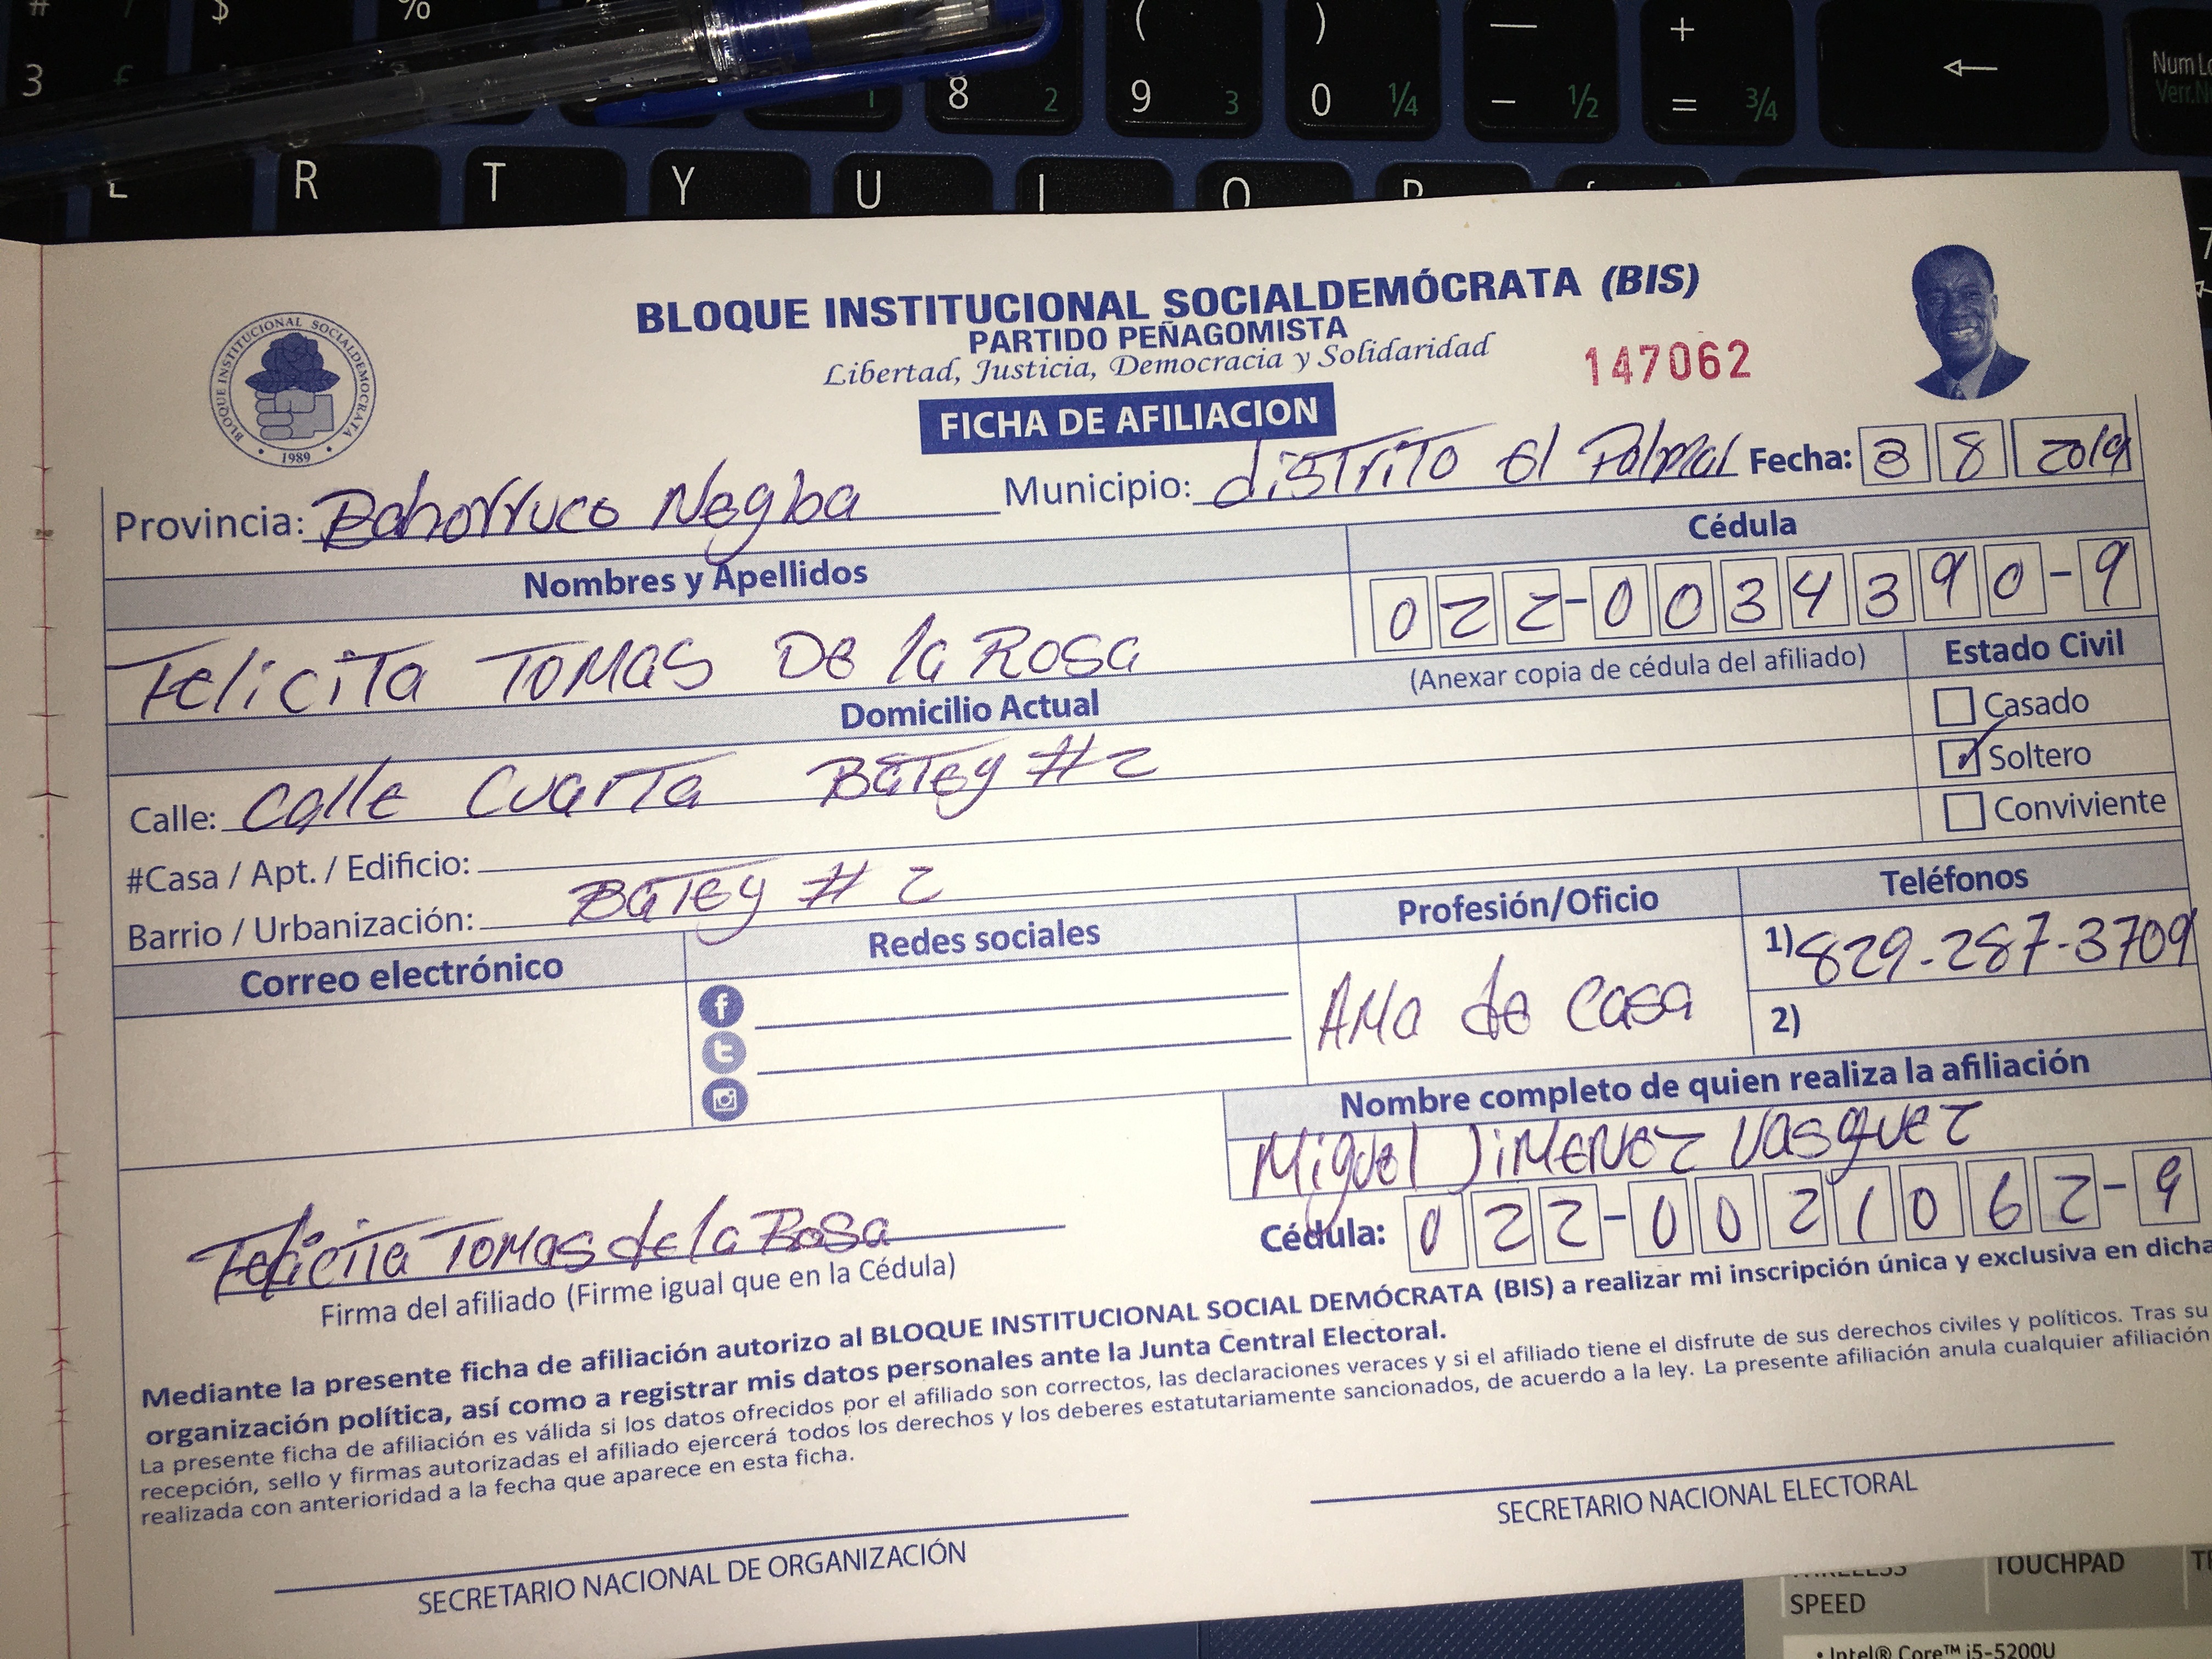 # $ %
3 £ 1 8 2 ( 9 3 ) 0 1/4 — - 1/2 + = 3/4 ←
R T Y U I O P
BLOQUE INSTITUCIONAL SOCIALDEMÓCRATA (BIS)
PARTIDO PEÑAGOMISTA
Libertad, Justicia, Democracia y Solidaridad
147062
BLOQUE INSTITUCIONAL SOCIALDEMOCRATA
1989
FICHA DE AFILIACION
Provincia: Bahorruco Negba Municipio: distrito El Palmal Fecha: 3 8 2019
Nombres y Apellidos Cédula
Felicita Tomas De la Rosa 022-0034390-9
(Anexar copia de cédula del afiliado) Estado Civil
Domicilio Actual
Casado
Soltero
Conviviente
Calle: Calle Cuarta Batey #2
#Casa / Apt. / Edificio:
Barrio / Urbanización: Batey # 2
Correo electrónico Redes sociales Profesión/Oficio Teléfonos
Ama de Casa 1) 829-287-3709
2)
Nombre completo de quien realiza la afiliación
Miguel Jimenez Vasquez
Cédula: 022-0021062-9
Felicita Tomas de la Rosa
Firma del afiliado (Firme igual que en la Cédula)
Mediante la presente ficha de afiliación autorizo al BLOQUE INSTITUCIONAL SOCIAL DEMÓCRATA (BIS) a realizar mi inscripción única y exclusiva en dicha
organización política, así como a registrar mis datos personales ante la Junta Central Electoral.
La presente ficha de afiliación es válida si los datos ofrecidos por el afiliado son correctos, las declaraciones veraces y si el afiliado tiene el disfrute de sus derechos civiles y políticos. Tras su
recepción, sello y firmas autorizadas el afiliado ejercerá todos los derechos y los deberes estatutariamente sancionados, de acuerdo a la ley. La presente afiliación anula cualquier afiliación
realizada con anterioridad a la fecha que aparece en esta ficha.
SECRETARIO NACIONAL DE ORGANIZACIÓN
SECRETARIO NACIONAL ELECTORAL
TOUCHPAD
SPEED
• Intel® Core™ i5-5200U